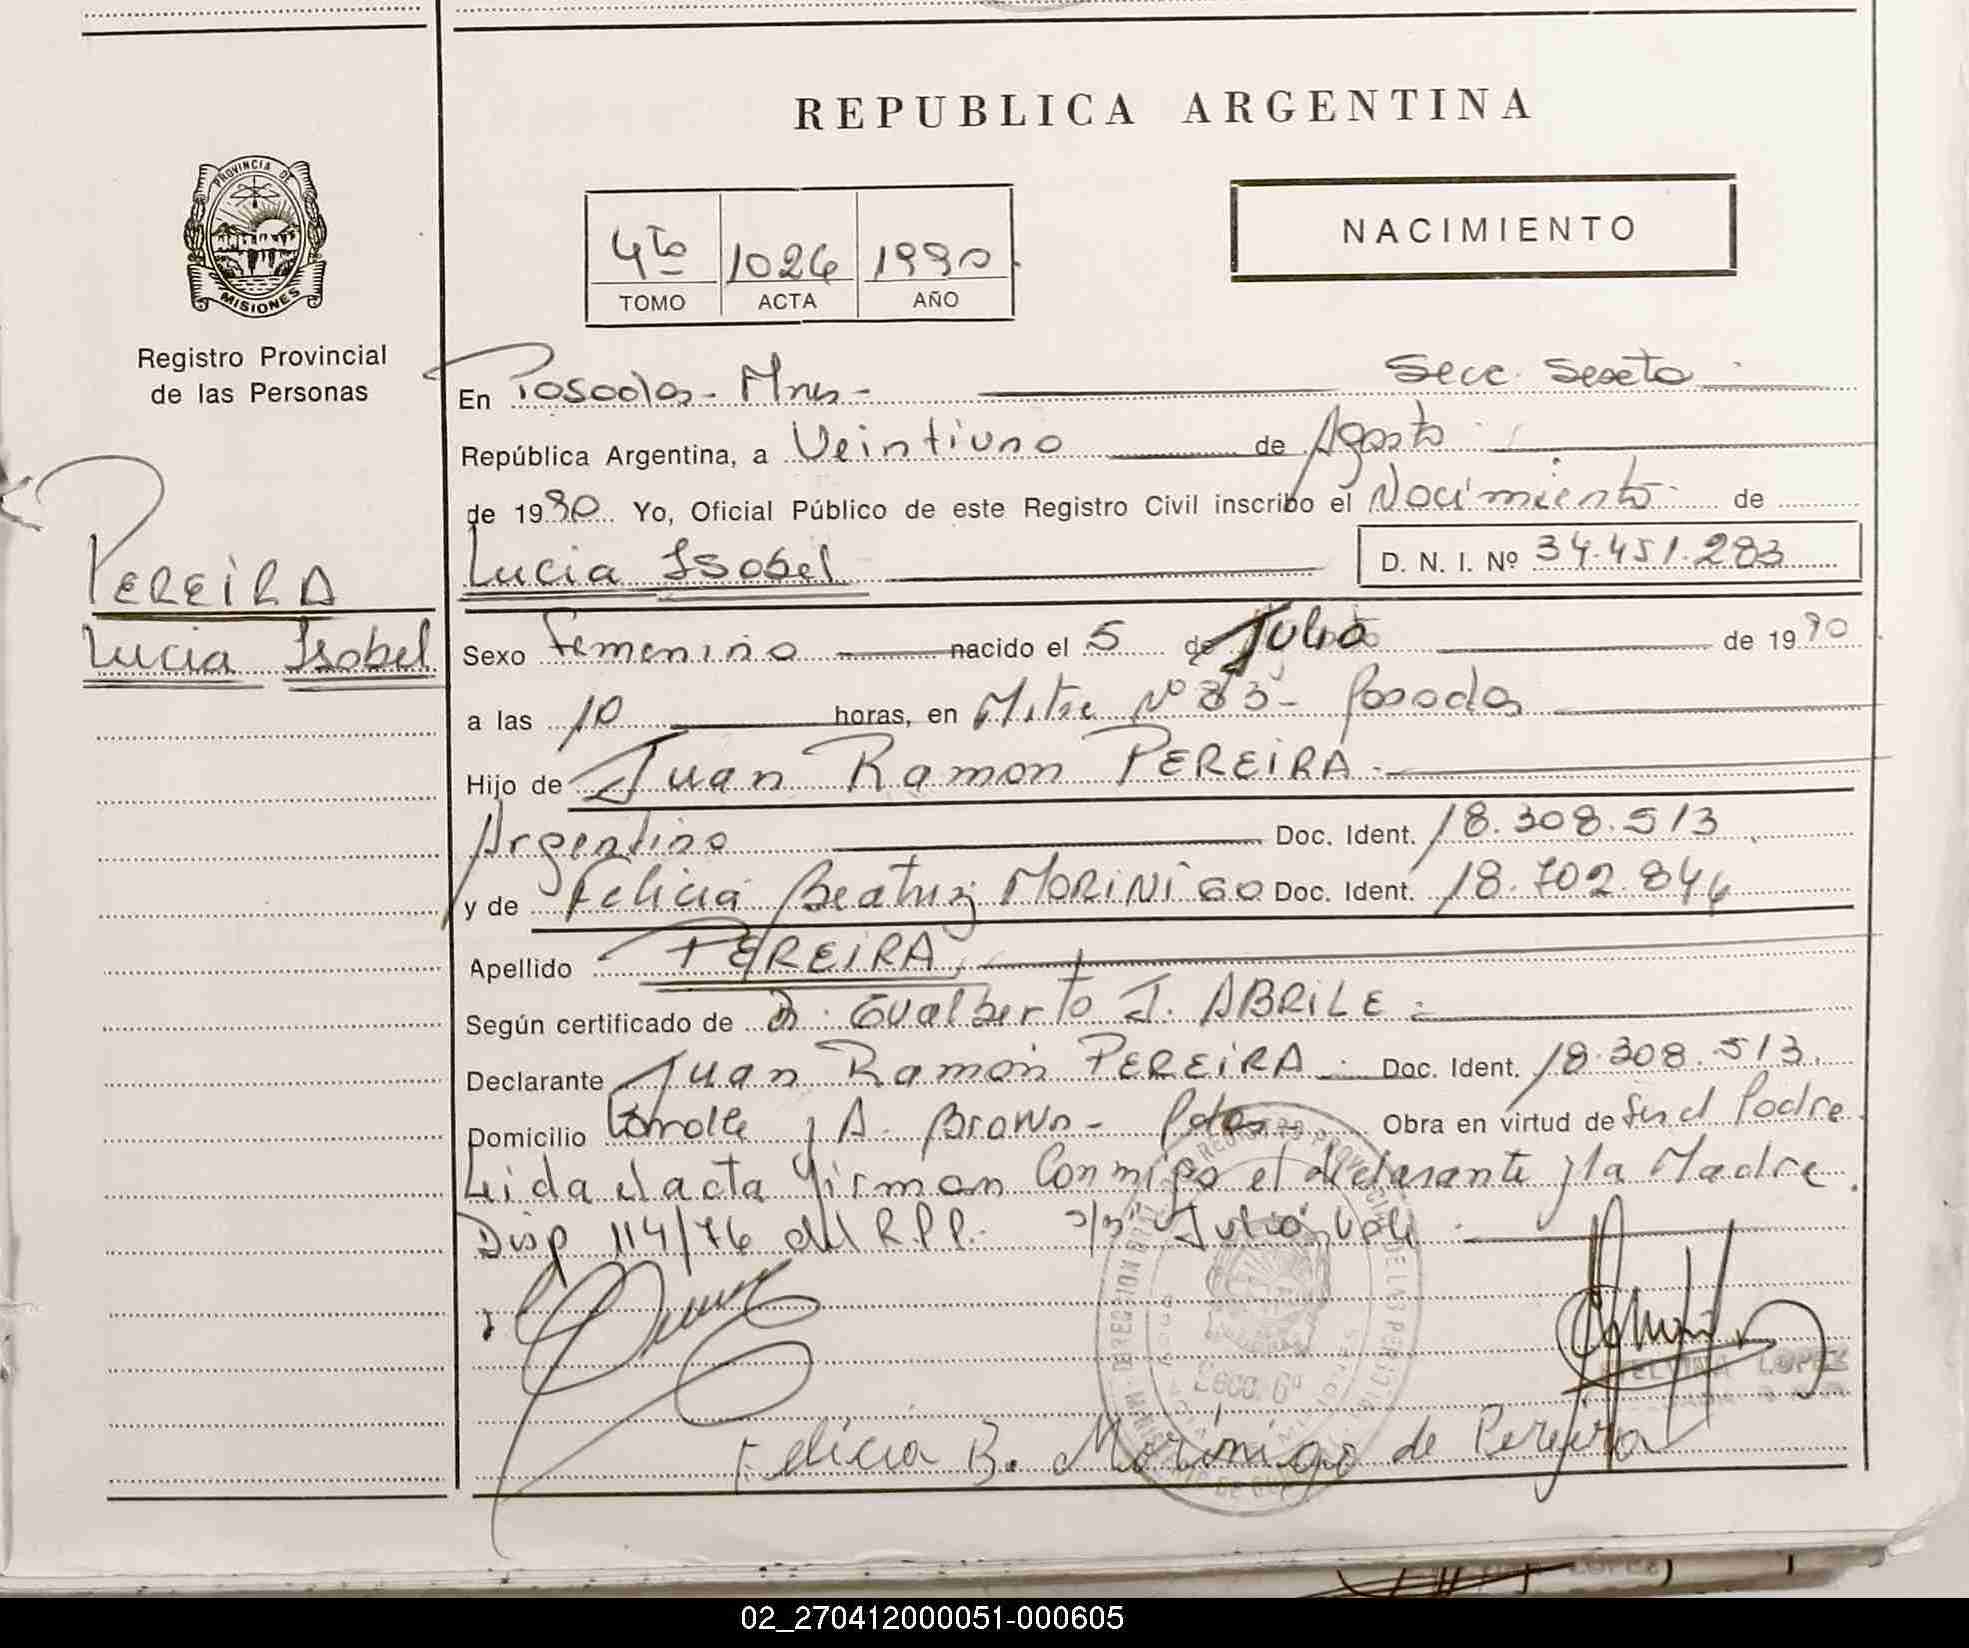 REPUBLICA ARGENTINA
PROVINCIA DE
MISIONES
Registro Provincial
de las Personas
4to 1026 1990
TOMO ACTA AÑO
NACIMIENTO
PEREIRA
Lucia Isabel
En Posadas - Mnes - Secc. Sexta
República Argentina, a Veintiuno de Agosto
de 1990 Yo, Oficial Público de este Registro Civil inscribo el Nacimiento de
Lucia Isabel D. N. I. Nº 34.451.283
Sexo femenino nacido el 5 de Julio de 1990
a las 10 horas, en Mitre Nº 83 - Posadas
Hijo de Juan Ramon PEREIRA
Argentino Doc. Ident. 18.308.513
y de Felicia Beatriz MORINIGO Doc. Ident. 18.702.846
Apellido PEREIRA
Según certificado de Dr. Gualberto J. ABRILE
Declarante Juan Ramón PEREIRA Doc. Ident. 18.308.513
Domicilio y A. Brown - Pdas - Obra en virtud de ser el Padre
Leida el acta firman Conmigo el declarante y la Madre
Disp 114/76 del R.P.P. s/r Julio Vale
Secc. 6ª
LOPEZ
Felicia B. Morinigo de Pereira
LOPEZ
02_270412000051-000605